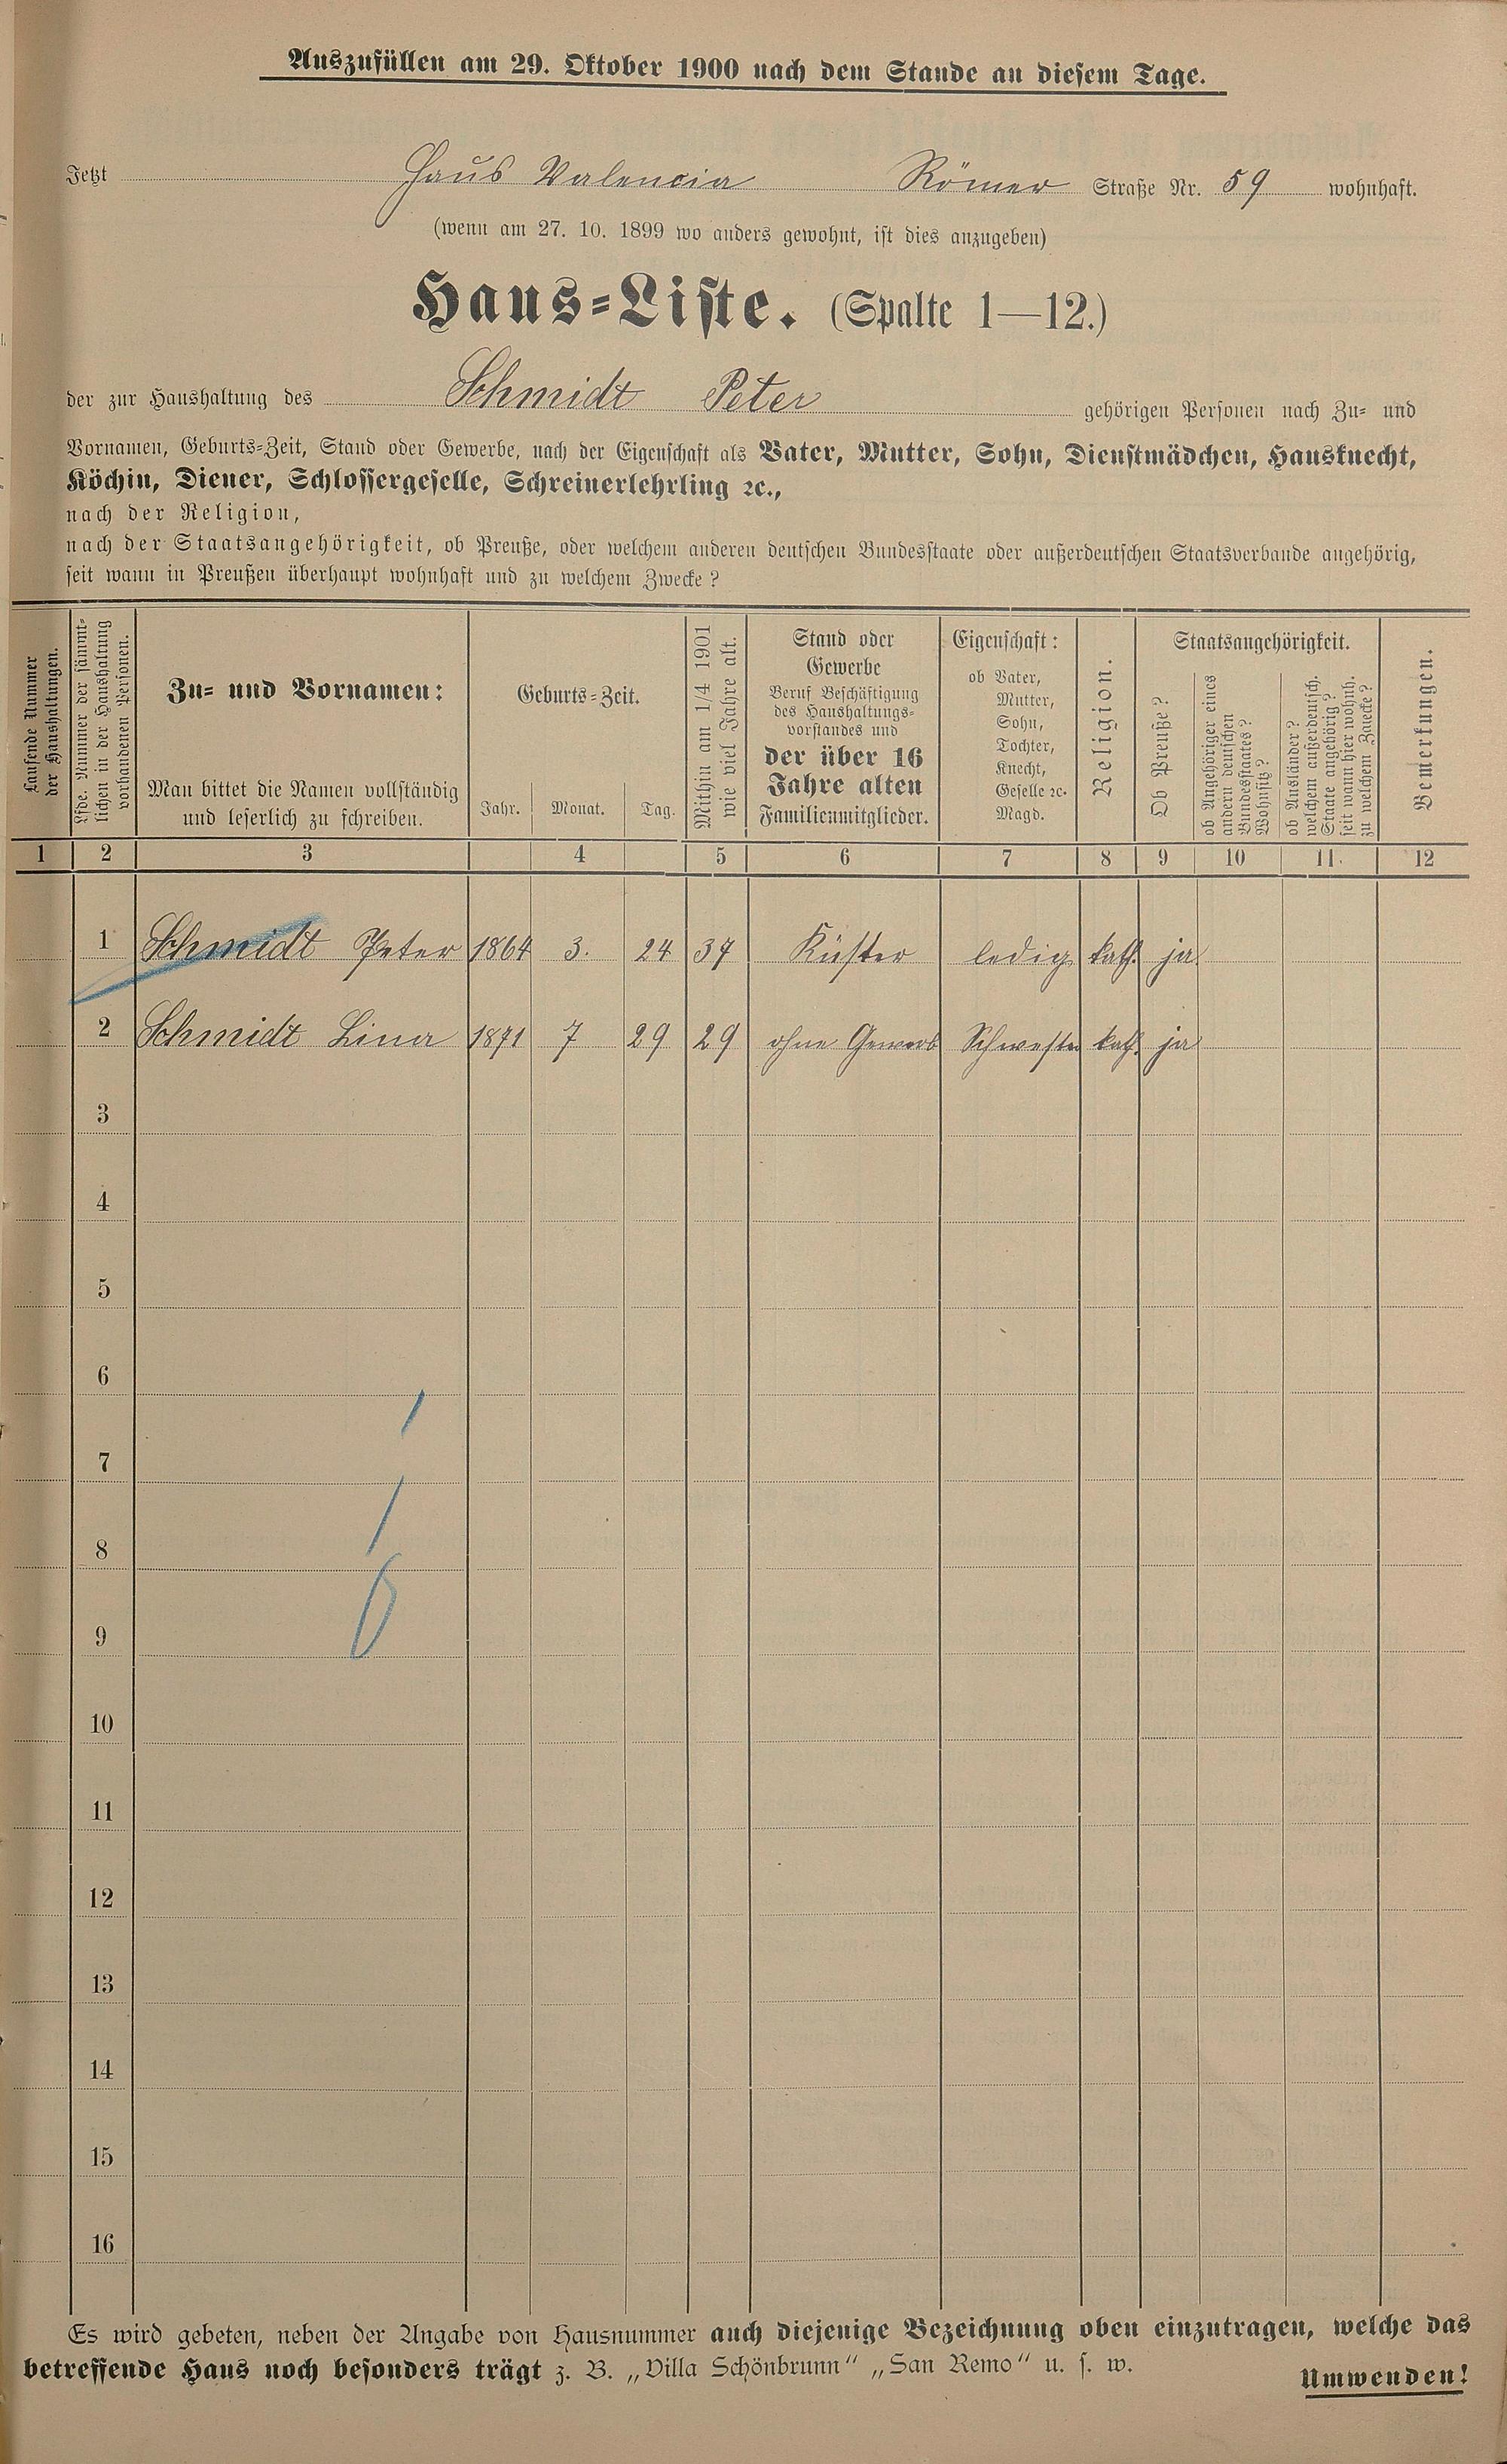 Auszufüllen am 29. Oktober 1900 nach dem Stande an diesem Tage.
Jetzt Haus Valencia Römer Straße Nr. 59 wohnhaft.
(wenn am 27. 10. 1899 wo anders gewohnt, ist dies anzugeben)
Haus=Liste. (Spalte 1—12.)
der zur Haushaltung des Schmidt Peter gehörigen Personen nach Zu= und
Vornamen, Geburts=Zeit, Stand oder Gewerbe, nach der Eigenschaft als Vater, Mutter, Sohn, Dienstmädchen, Hausknecht,
Köchin, Diener, Schlossergeselle, Schreinerlehrling ꝛc.,
nach der Religion,
nach der Staatsangehörigkeit, ob Preuße, oder welchem anderen deutschen Bundesstaate oder außerdeutschen Staatsverbande angehörig,
seit wann in Preußen überhaupt wohnhaft und zu welchem Zwecke?
Laufende Nummer
der Haushaltungen.
Lfde. Nummer der sämmt=
lichen in der Haushaltung
vorhandenen Personen.
Zu= und Vornamen:
Man bittet die Namen vollständig
und leserlich zu schreiben.
Geburts=Zeit.
Jahr. Monat. Tag.
Mithin am 1/4 1901
wie viel Jahre alt.
Stand oder
Gewerbe
Beruf Beschäftigung
des Haushaltungs=
vorstandes und
der über 16
Jahre alten
Familienmitglieder.
Eigenschaft:
ob Vater,
Mutter,
Sohn,
Tochter,
Knecht,
Geselle ꝛc.
Magd.
Religion.
Staatsangehörigkeit.
Ob Preuße?
ob Angehöriger eines
andern deutschen
Bundesstaates?
Wohnsitz?
ob Ausländer?
welchem außerdeutsch.
Staate angehörig?
seit wann hier wohnh.
zu welchem Zwecke?
Bemerkungen.
1 2 3 4 5 6 7 8 9 10 11. 12
1 Schmidt Peter 1864 3. 24 37 Küster ledig kath. ja.
2 Schmidt Lina 1871 7 29 29 ohne Gewerb Schwester kath. ja
3
4
5
6
7
8
9
10
11
12
13
14
15
16
Es wird gebeten, neben der Angabe von Hausnummer auch diejenige Bezeichnung oben einzutragen, welche das
betreffende Haus noch besonders trägt z. B. „Villa Schönbrunn“ „San Remo“ u. s. w.
Umwenden!